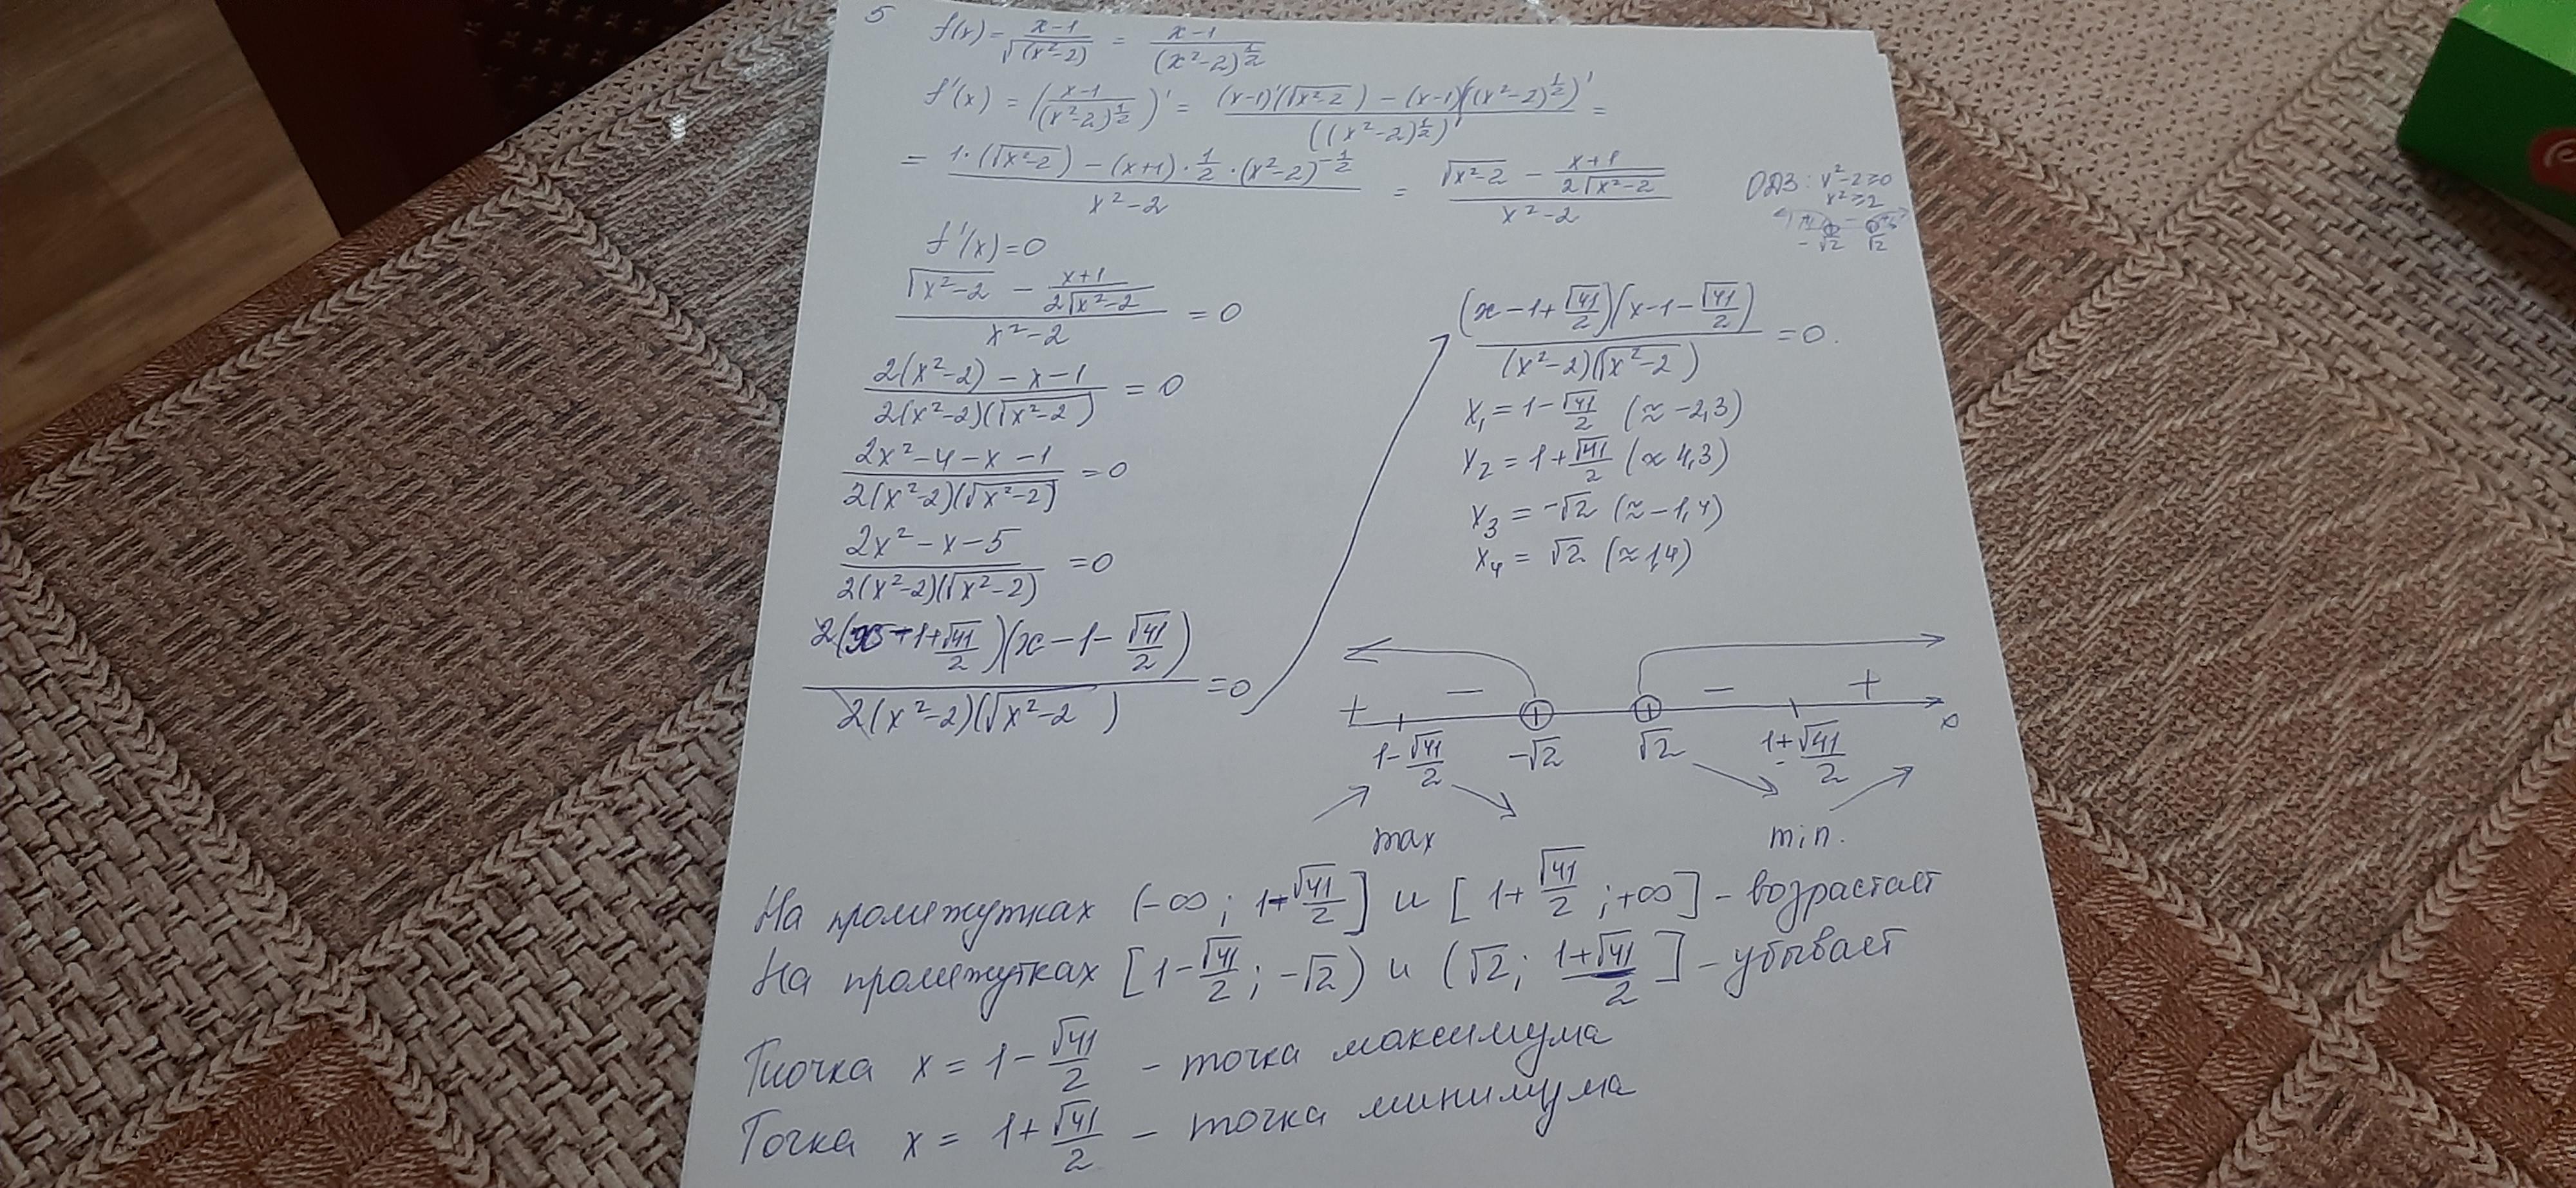 5
f(x) = (x-1)/(√(x²-2)) = (x-1)/((x²-2)^(1/2))
f'(x) = ((x-1)/((x²-2)^(1/2)))' = ((x-1)'(√x²-2) - (x-1)((x²-2)^(1/2))')/(((x²-2)^(1/2))') =
= (1·(√x²-2) - (x+1)·1/2·(x²-2)^(-1/2))/(x²-2) = (√x²-2 - (x+1)/(2√x²-2))/(x²-2)
ОДЗ: x²-2≥0
x²≥2
-√2 √2
f'(x)=0
(√x²-2 - (x+1)/(2√x²-2))/(x²-2) = 0
(2(x²-2) - x - 1)/(2(x²-2)(√x²-2)) = 0
(2x²-4-x-1)/(2(x²-2)(√x²-2)) = 0
(2x²-x-5)/(2(x²-2)(√x²-2)) = 0
2(x-1+√41/2)(x-1-√41/2)/(2(x²-2)(√x²-2)) = 0
(x-1+√41/2)(x-1-√41/2)/((x²-2)(√x²-2)) = 0.
x₁ = 1-√41/2 (≈ -2,3)
x₂ = 1+√41/2 (≈ 4,3)
x₃ = -√2 (≈ -1,4)
x₄ = √2 (≈ 1,4)
+ − − +
1-√41/2 -√2 √2 1+√41/2 x
max min.
На промежутках (-∞; 1-√41/2] и [1+√41/2; +∞] - возрастает
На промежутках [1-√41/2; -√2) и (√2; (1+√41)/2] - убывает
Тиочка x = 1-√41/2 - точка максимума
Точка x = 1+√41/2 - точка минимума